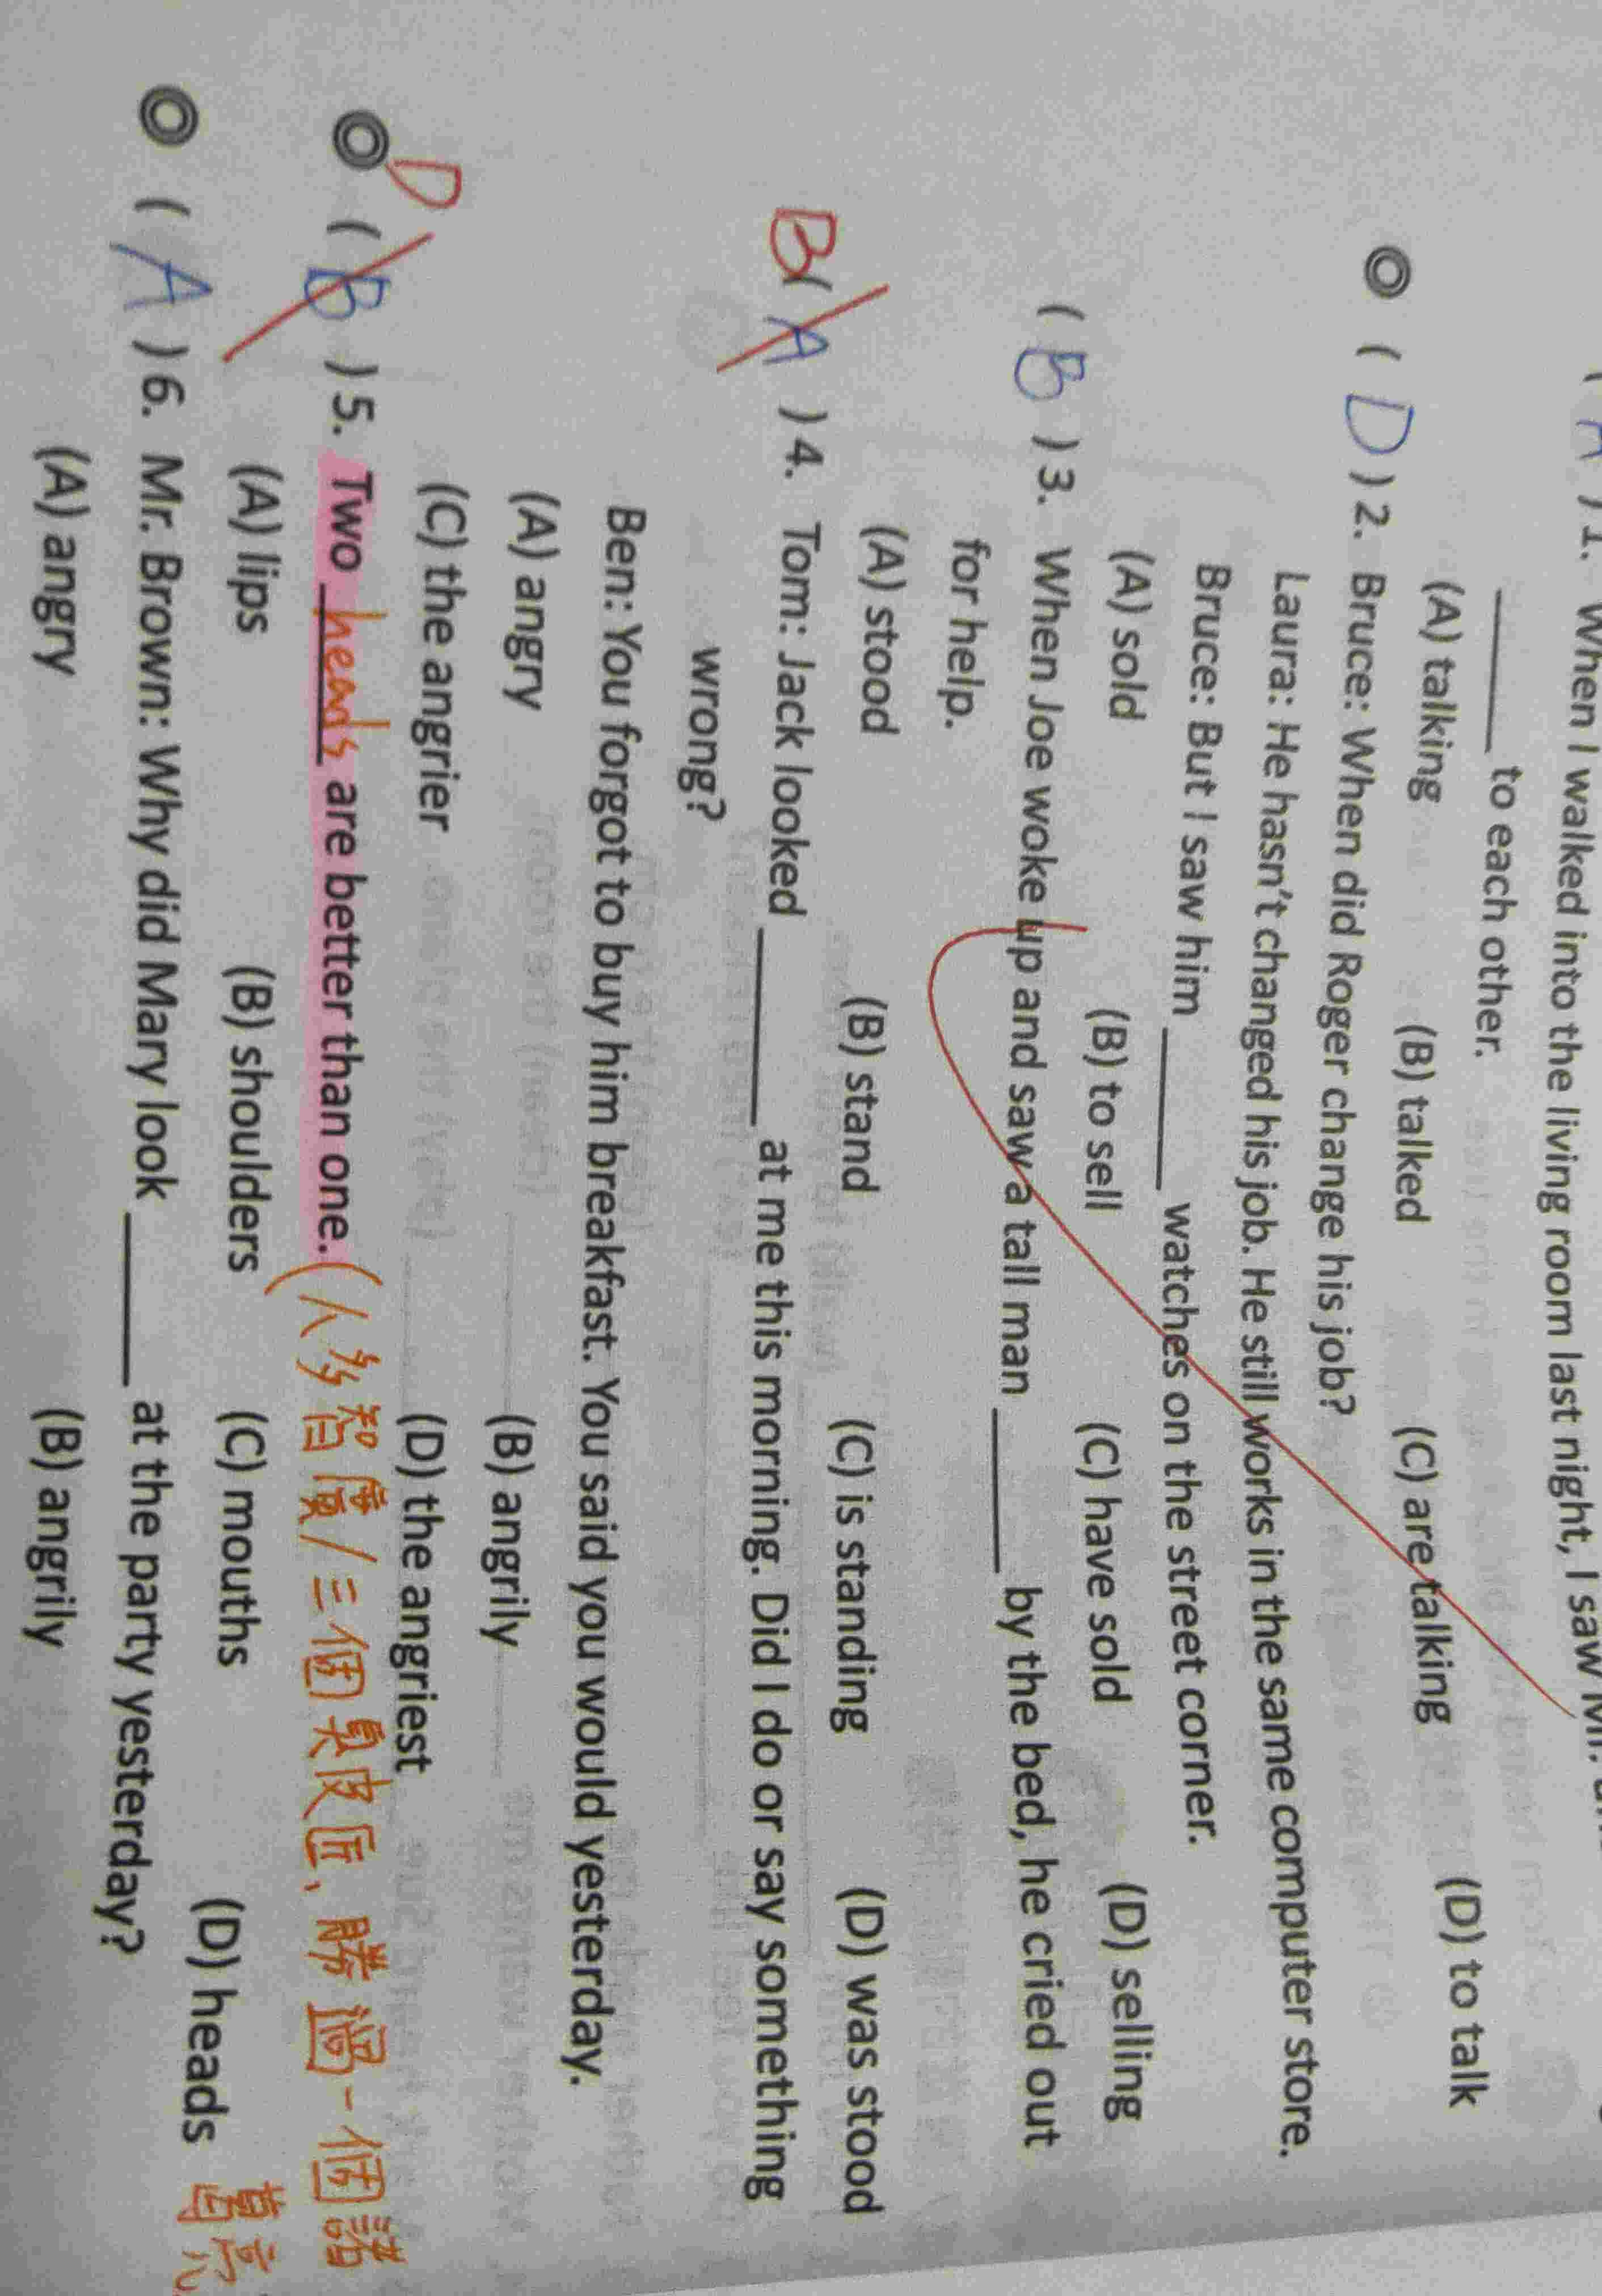 ( A ) 1. When I walked into the living room last night, I saw
_____ to each other.
(A) talking (B) talked (C) are talking (D) to talk
◎ ( D ) 2. Bruce: When did Roger change his job?
Laura: He hasn't changed his job. He still works in the same computer store.
Bruce: But I saw him _____ watches on the street corner.
(A) sold (B) to sell (C) have sold (D) selling
( B ) 3. When Joe woke up and saw a tall man _____ by the bed, he cried out
for help.
(A) stood (B) stand (C) is standing (D) was stood
B ( A ) 4. Tom: Jack looked _____ at me this morning. Did I do or say something
wrong?
Ben: You forgot to buy him breakfast. You said you would yesterday.
(A) angry (B) angrily
(C) the angrier (D) the angriest
◎ D ( B ) 5. Two heads are better than one. (人多智廣/三個臭皮匠、勝過一個諸葛亮
(A) lips (B) shoulders (C) mouths (D) heads
◎ ( A ) 6. Mr. Brown: Why did Mary look _____ at the party yesterday?
(A) angry (B) angrily